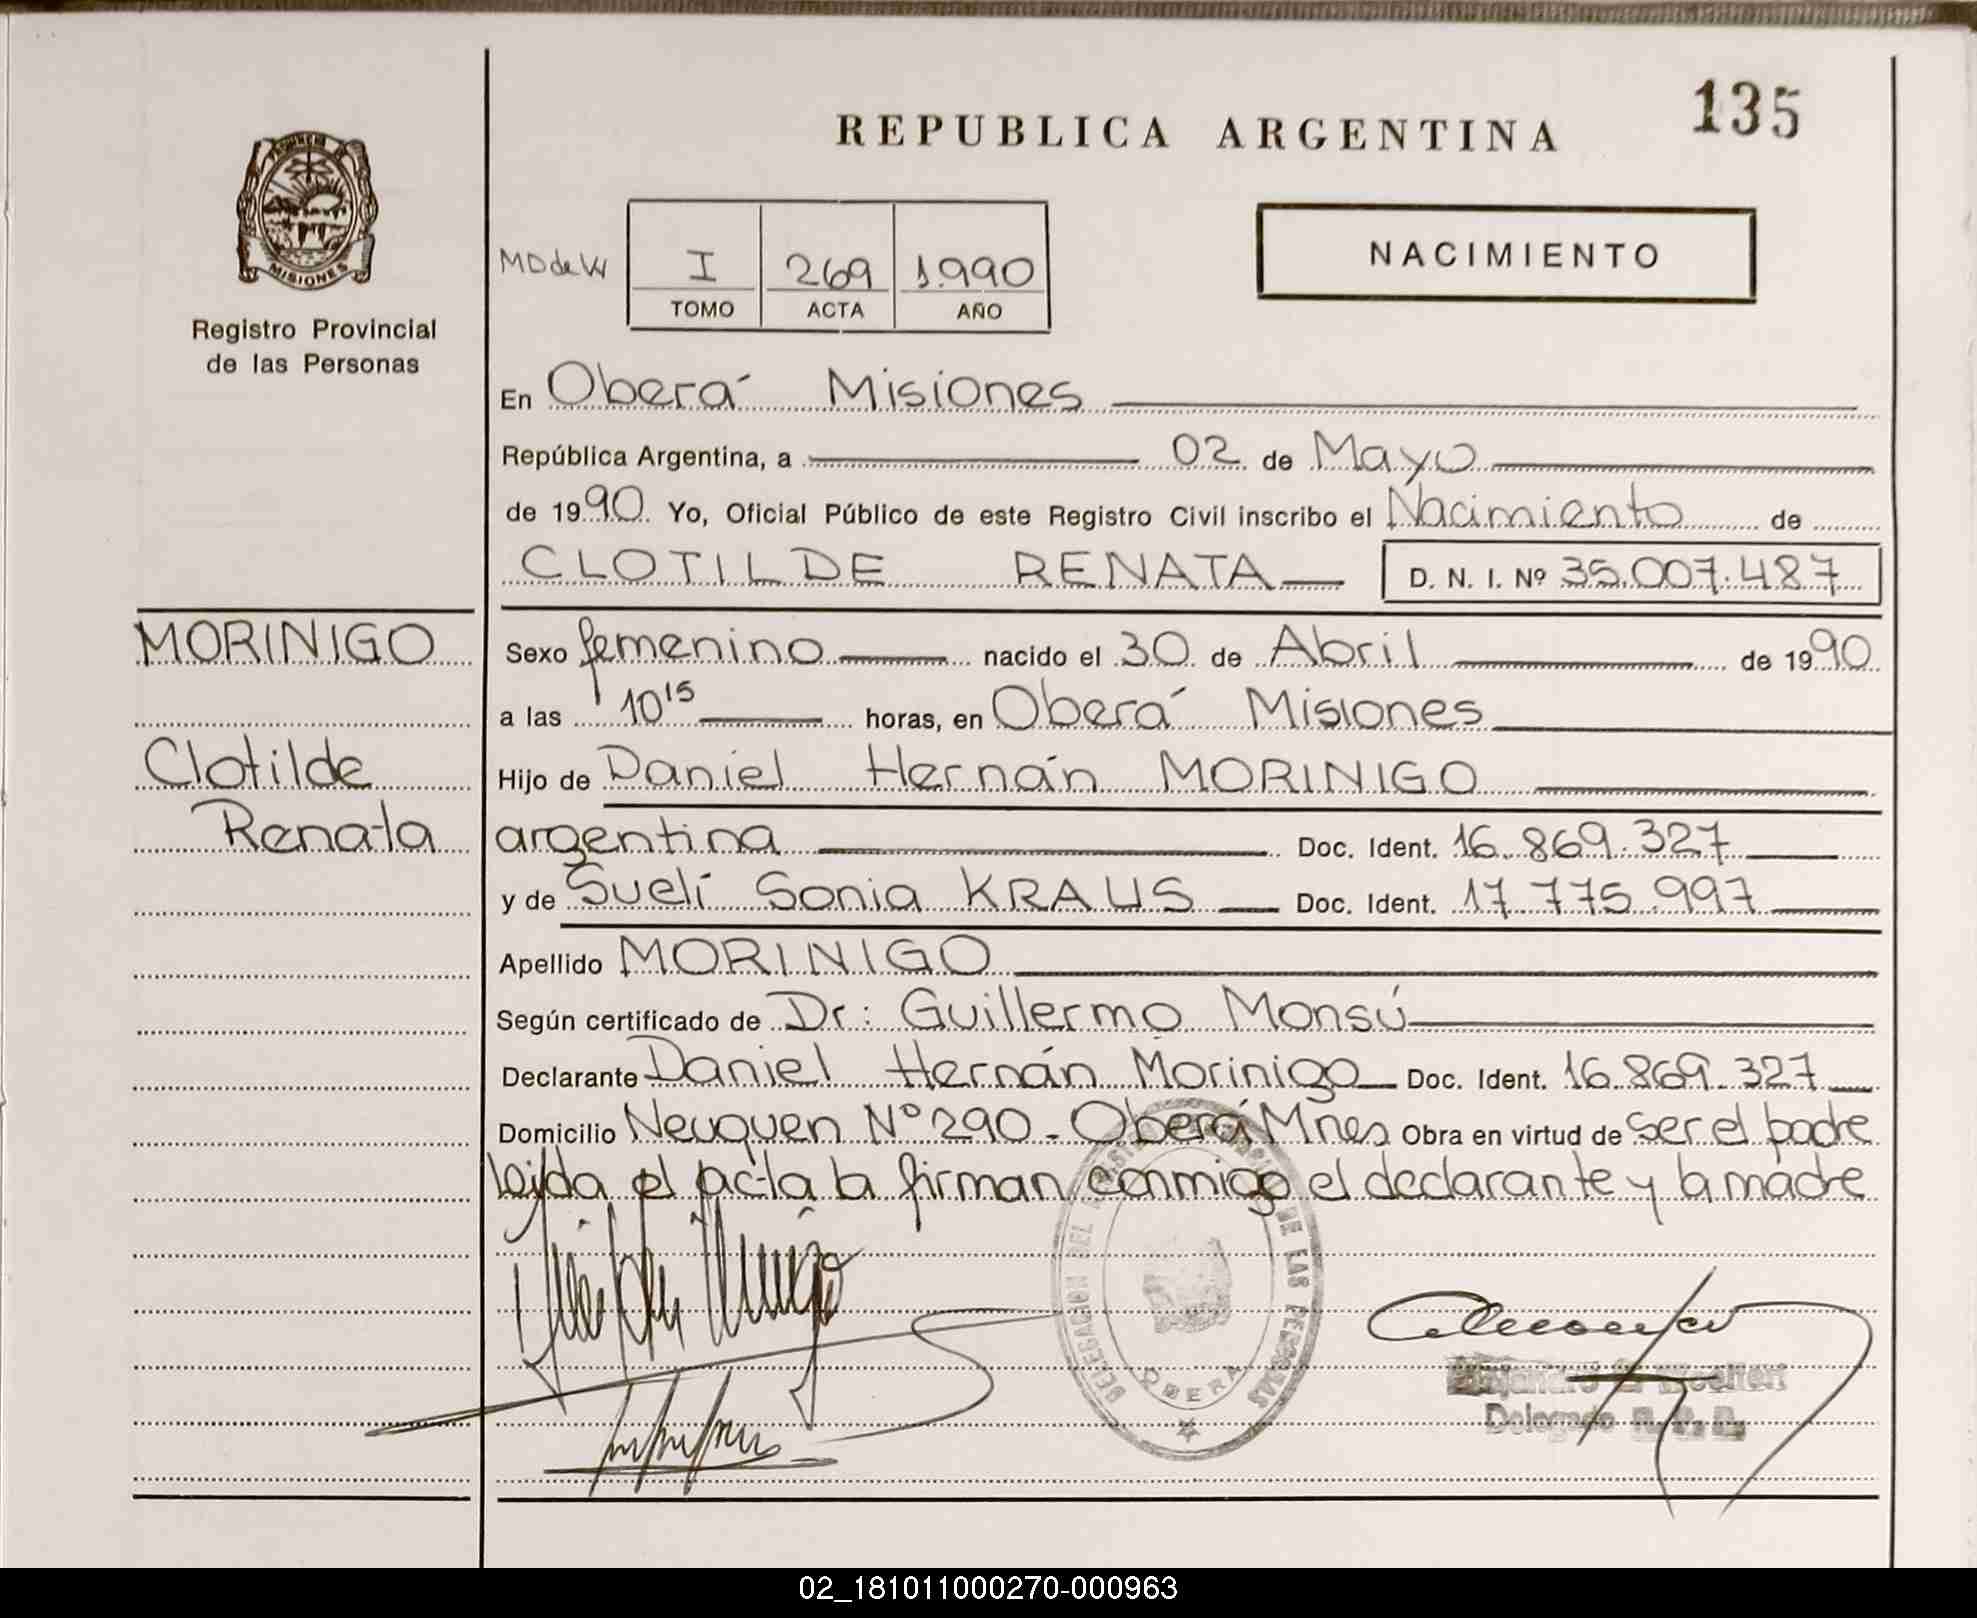 REPUBLICA ARGENTINA
135
PROVINCIA DE
MISIONES
Registro Provincial
de las Personas
I
269
1.990
TOMO
ACTA
AÑO
NACIMIENTO
En Oberá Misiones
República Argentina, a 02 de Mayo
de 1990 Yo, Oficial Público de este Registro Civil inscribo el Nacimiento de
CLOTILDE RENATA D. N. I. Nº 35.007.487
MORINIGO
Clotilde
Renata
Sexo femenino nacido el 30 de Abril de 1990
a las 10 15 horas, en Oberá Misiones
Hijo de Daniel Hernán MORINIGO
argentina Doc. Ident. 16.869.327
y de Sueli Sonia KRAUS Doc. Ident. 17.775.997
Apellido MORINIGO
Según certificado de Dr: Guillermo Monsú
Declarante Daniel Hernán Morinigo Doc. Ident. 16.869.327
Domicilio Neuquen Nº 290 - Oberá Mnes Obra en virtud de ser el padre
leida el acta la firman conmigo el declarante y la madre
DELEGACION DEL DE LAS PERSONAS
OBERA
Delegado R. P. P.
02_181011000270-000963